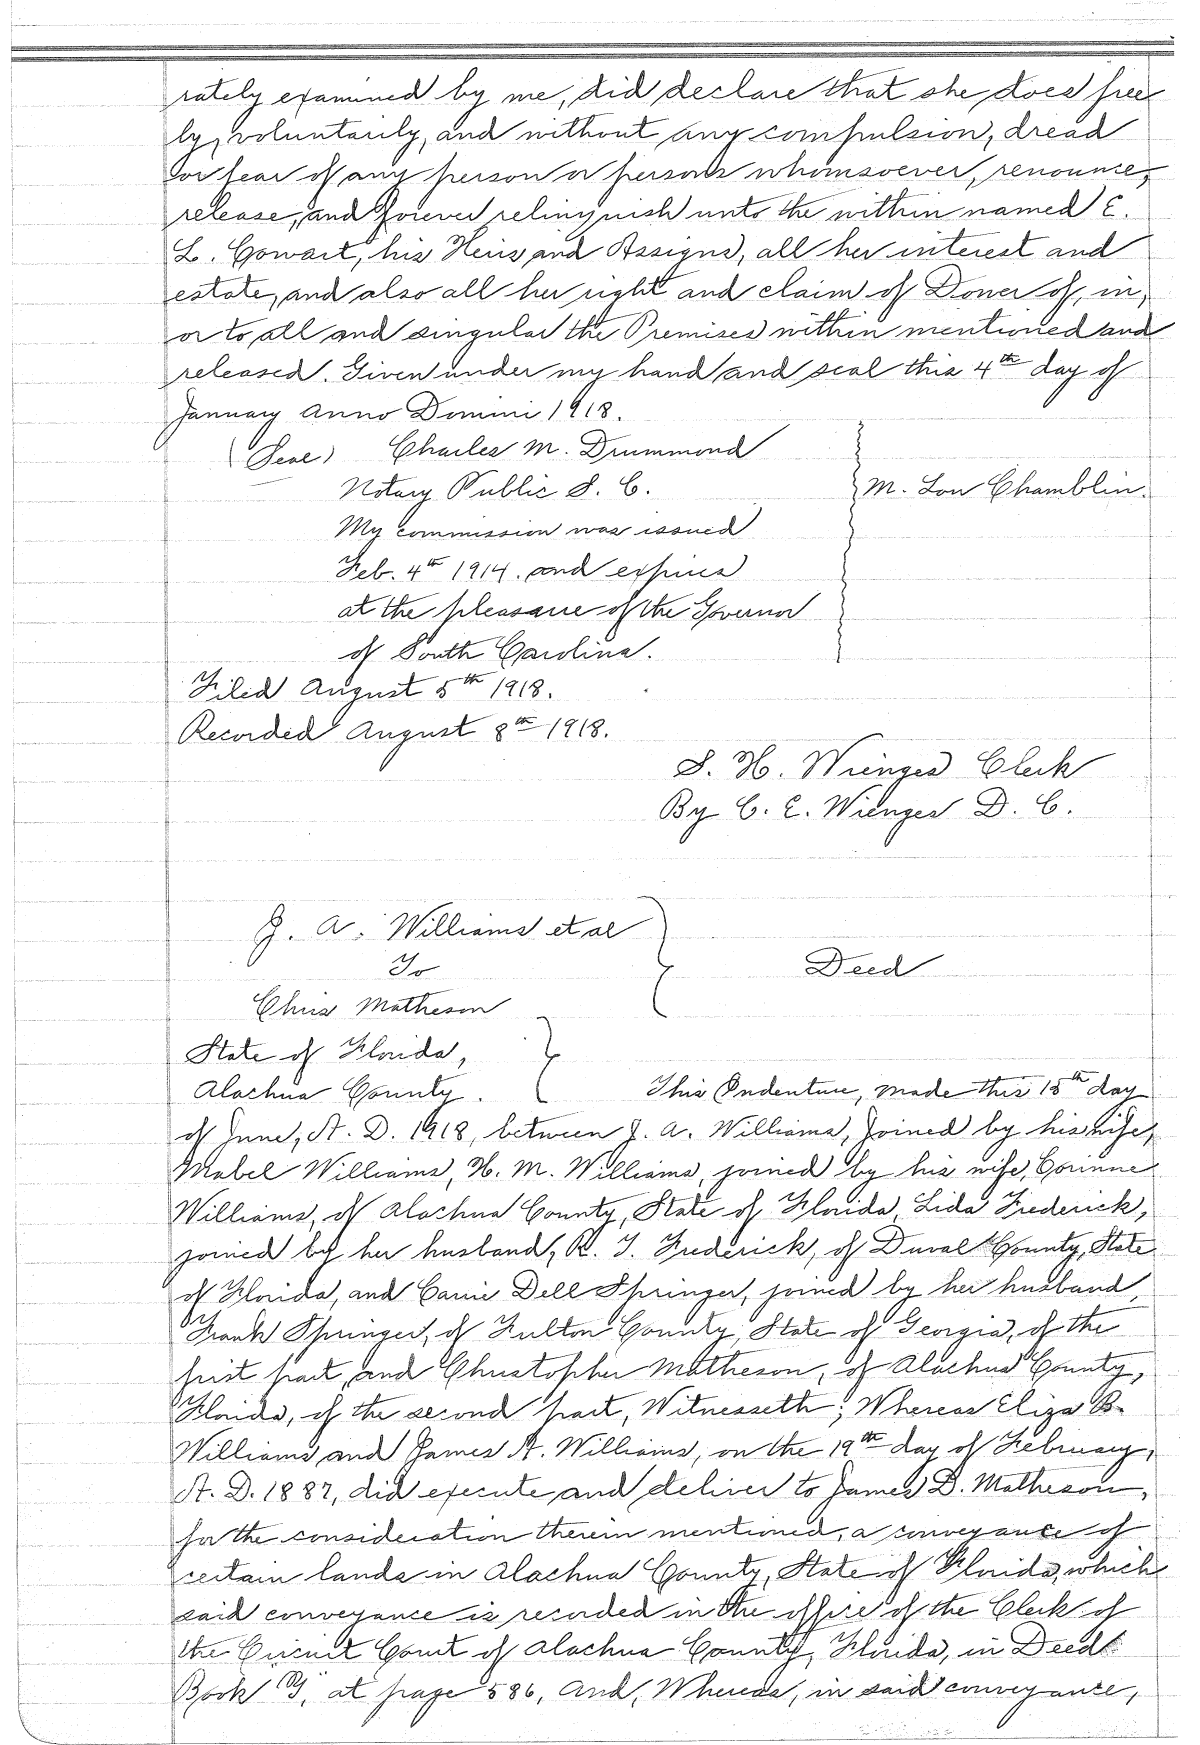 rately examined by me, did declare that she does free
ly, voluntarily, and without any compulsion, dread
or fear of any person or persons whomsoever, renounce,
release, and forever relinquish unto the within named E.
L. Cowart, his Heirs and Assigns, all her interest and
estate, and also all her right and claim of Dower of, in,
or to all and singular the Premises within mentioned and
released. Given under my hand and seal this 4th day of
January Anno Domini 1918.
(Seal) Charles M. Drummond
Notary Public S. C.
M. Lou Chamblin.
My commission was issued
Feb. 4th 1914. and expires
at the pleasure of the Governor
of South Carolina.
Filed August 5th 1918.
Recorded August 8th 1918.
S. H. Wienges Clerk
By C. E. Wienges D. C.
J. A. Williams et al
To
Deed
Chris Matheson
State of Florida,
Alachua County. This Indenture, made this 15th day
of June, A. D. 1918, between J. A. Williams, joined by his wife,
Mabel Williams, H. M. Williams, joined by his wife, Corinne
Williams, of Alachua County, State of Florida, Lida Frederick,
joined by her husband, R. T. Frederick, of Duval County, State
of Florida, and Carrie Dell Springer, joined by her husband,
Frank Springer, of Fulton County, State of Georgia, of the
first part, and Christopher Matheson, of Alachua County,
Florida, of the second part, Witnesseth; Whereas Eliza B.
Williams and James A. Williams, on the 19th day of February,
A. D. 1887, did execute and deliver to James D. Matheson,
for the consideration therein mentioned, a conveyance of
certain lands in Alachua County, State of Florida, which
said conveyance is recorded in the office of the Clerk of
the Circuit Court of Alachua County, Florida, in Deed
Book at page 586, And, Whereas, in said conveyance,